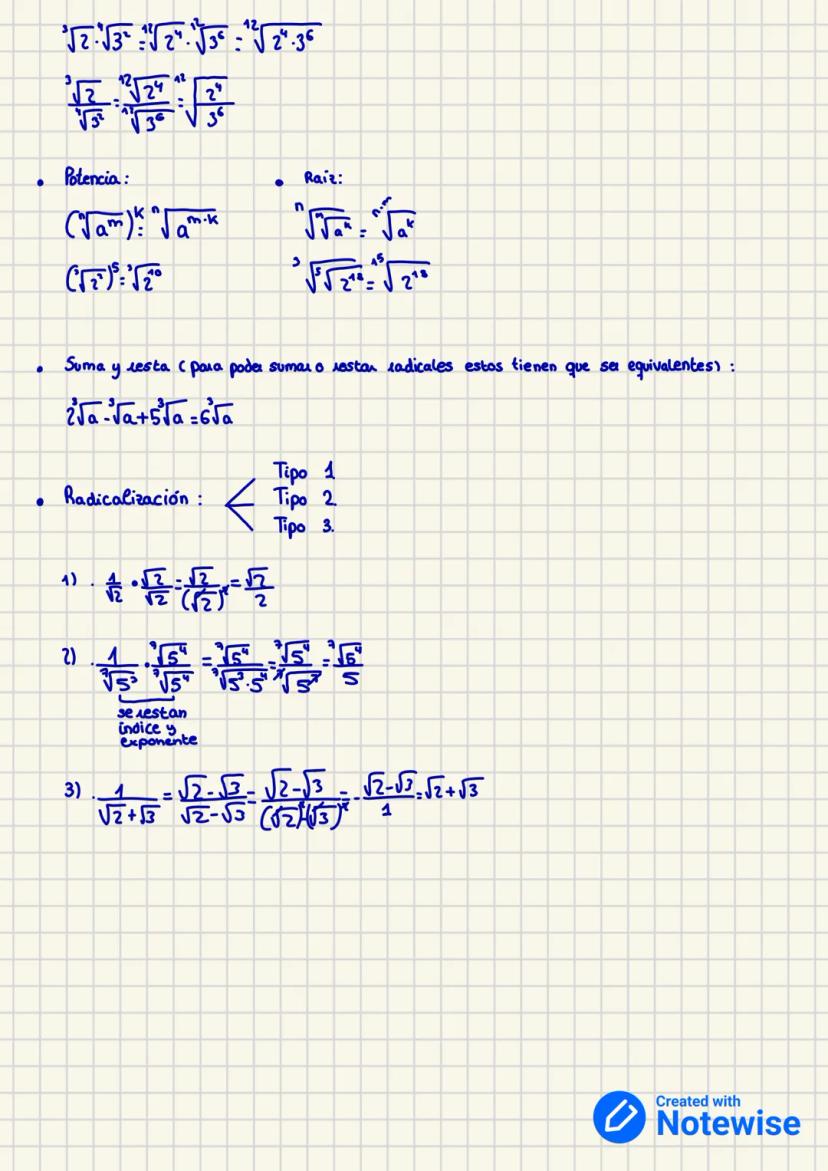 ∛2 · ∜3² = ¹²√2⁴ · ¹²√3⁶ = ¹²√(2⁴ · 3⁶)
∛2 / ∜3² = ¹²√2⁴ / ¹²√3⁶ = ¹²√(2⁴ / 3⁶)
• Potencia: • Raiz:
(ⁿ√aᵐ)ᵏ = ⁿ√aᵐ·ᵏ
(∛2²)⁵ = ∛2¹⁰ ∛(⁵√2¹⁸) = ¹⁵√2¹⁸
• Suma y resta (para poder sumar o restar radicales estos tienen que ser equivalentes) :
2∛a - ∛a + 5∛a = 6∛a
Tipo 1
• Radicalización : < Tipo 2
Tipo 3.
1) · 1/√2 · √2/√2 = √2/(√2)² = √2/2
2) · 1/⁷√5³ · ⁷√5⁴/⁷√5⁴ = ⁷√5⁴/⁷√(5³·5⁴) = ⁷√5⁴/⁷√5⁷ = ⁷√5⁴/5
se restan
índice y
exponente
3) · 1/(√2+√3) = (√2-√3)/(√2-√3) = (√2-√3)/((√2)²-(√3)²) = - (√2-√3)/1 = √2+√3
Created with
Notewise